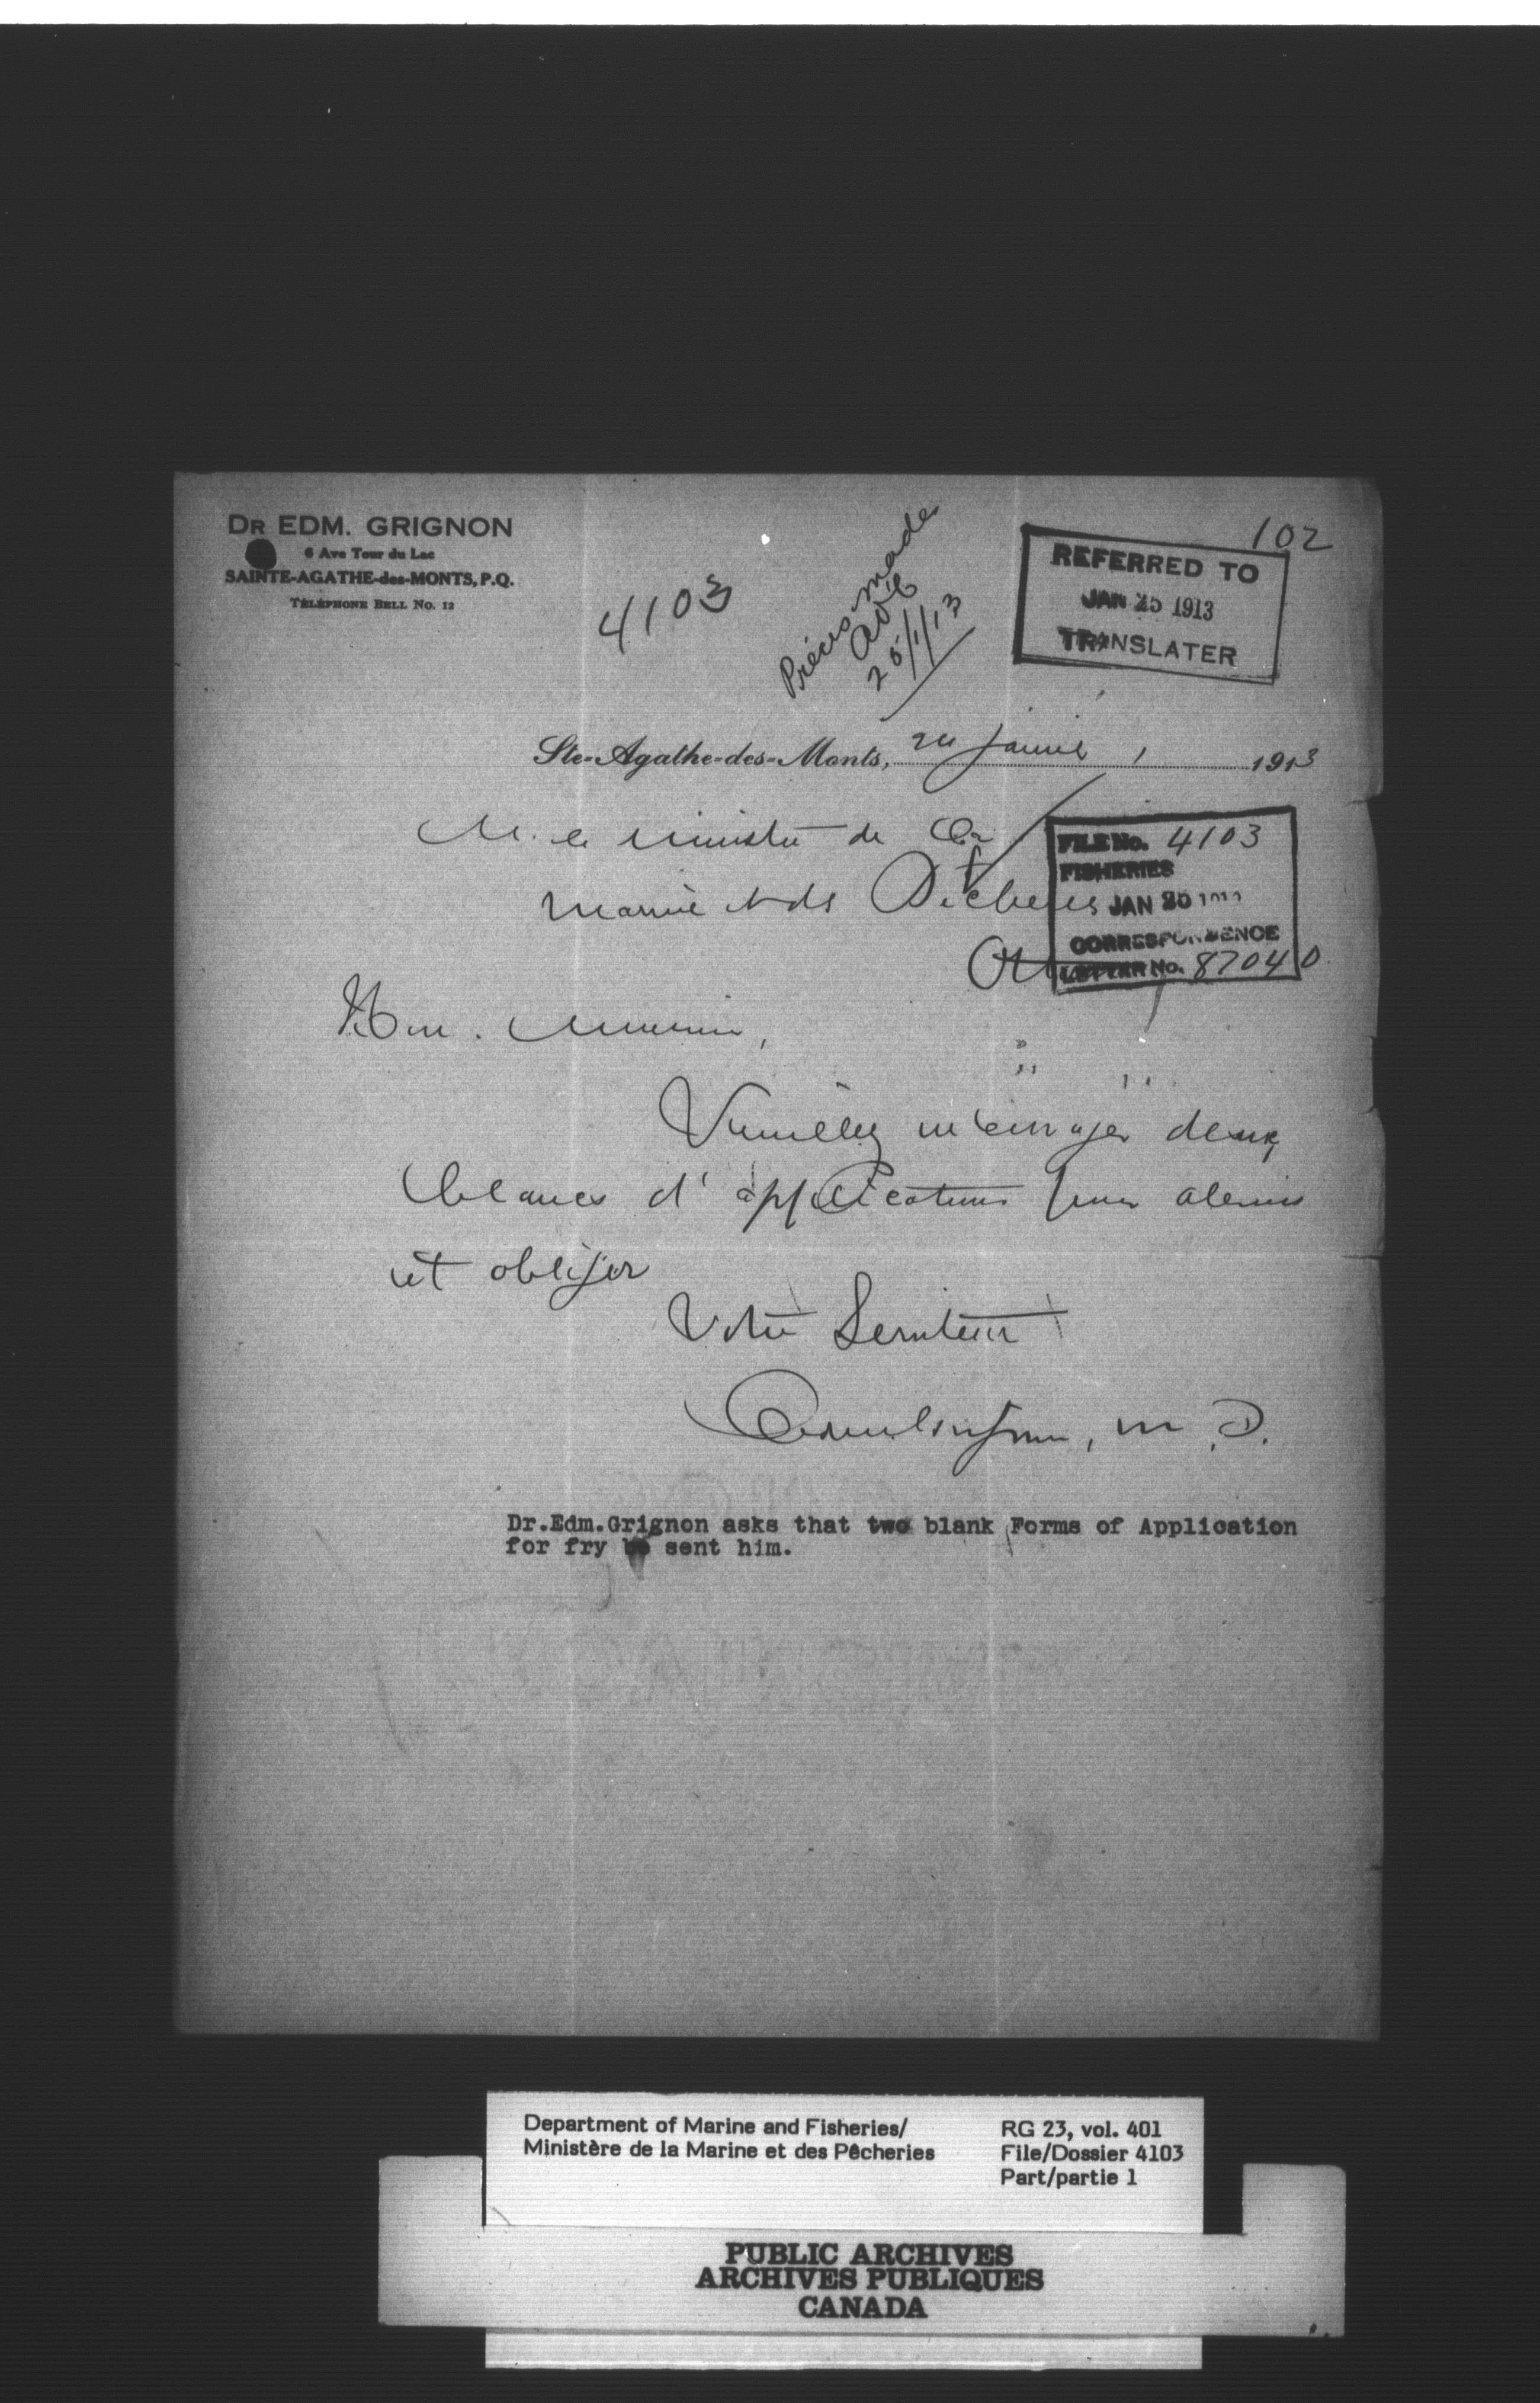 102
DR EDM. GRIGNON
6 Ave Tour du Lac
SAINTE-AGATHE-des-MONTS, P.Q.
TÉLÉPHONE BELL NO. 12
4103
Précis made
25/1/13
REFERRED TO
JAN 25 1913
TRANSLATER
Ste-Agathe-des-Monts, janvier 1913
M. le ministre de la
marine et des Pêcheries
FILE No. 4103
FISHERIES
JAN
CORRESPONDENCE
LETTER No. 87040
Hon. Monsieur,
Veuillez m'envoyer deux
blancs d'applications pour alevins
et obliger
Votre Serviteur
Edm Grignon, M.D.
Dr.Edm.Grignon asks that two blank Forms of Application
for fry be sent him.
Department of Marine and Fisheries/
Ministère de la Marine et des Pêcheries
RG 23, vol. 401
File/Dossier 4103
Part/partie 1
PUBLIC ARCHIVES
ARCHIVES PUBLIQUES
CANADA